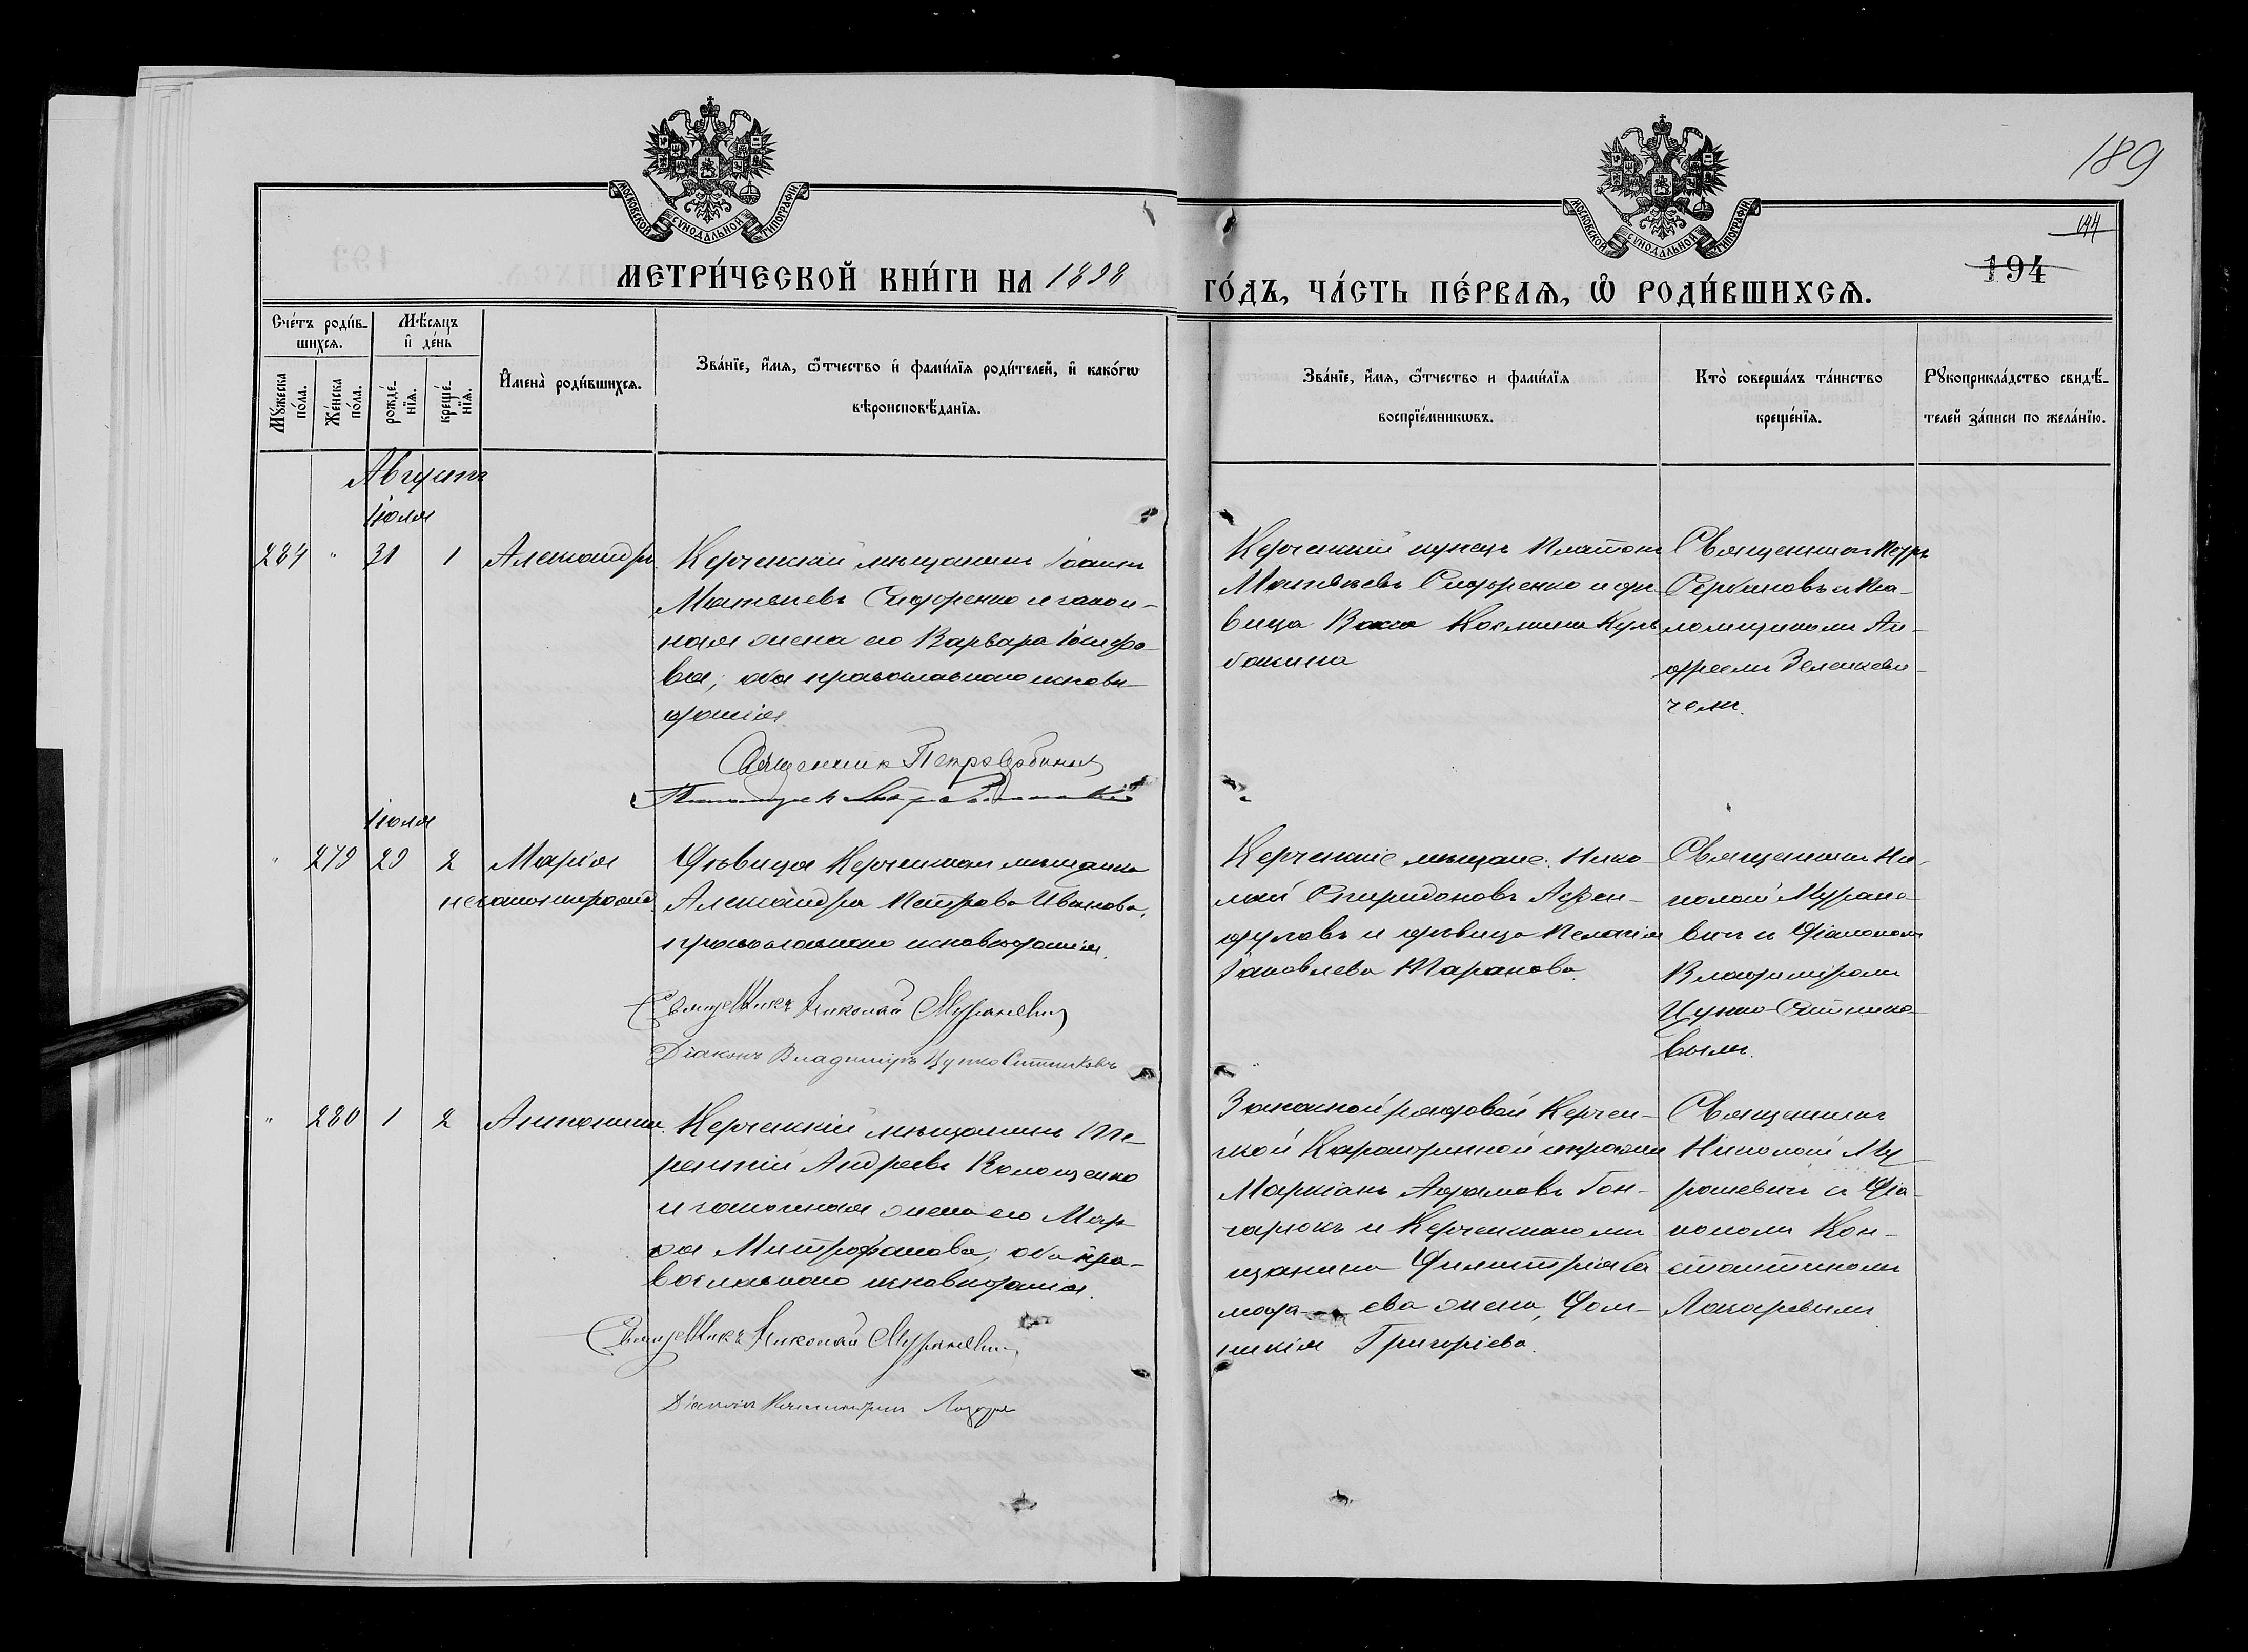 189
144
194
МОСКОВСКОЙ СУНОДАЛЬНОЙ ТИПОГРАФІИ
МОСКОВСКОЙ СУНОДАЛЬНОЙ ТИПОГРАФІИ
МЕТРИ́ЧЕСКОЙ КНИ́ГИ НА 1898 ГО́ДЪ, ЧА́СТЬ ПЕ́РВАЯ, Ѡ РОДИ́ВШИХСЯ.
Сче́тъ роди́в-
шихся.
Мѣ́сяцъ
и҆ де́нь
Мꙋжеска по́ла.
Же́нска по́ла.
рожде́-нїя.
креще́-нїя.
И҆мена̀ роди́вшихся.
Зва́нїе, и҆́мя, ѻ҆́тчество и҆ фами́лїя роди́телей, и҆ како́гѡ
вѣроисповѣ́данїя.
Зва́нїе, и҆́мя, ѻ҆́тчество и фами́лїя
воспрїе́мникѡвъ.
Кто̀ соверша́лъ та́инство
креще́нїя.
Рꙋкоприкла́дство свидѣ́-
телей за́писи по жела́нїю.
Августъ
Іюля
284 " 31 1 Александръ
Керченскій мѣщанинъ Іоаннъ
Матвѣевъ Сидоренко и закон-
ная жена его Варвара Іосифо-
ва; оба православнаго исповѣ-
данія
Священникъ Петръ Сербиновъ
Керченскій купецъ Платонъ
Матвѣевъ Сидоренко и дѣ-
вица Васса Космина Куль-
бакина
Священникъ Петръ
Сербиновъ и Пса-
ломщикомъ Ан-
дреемъ Зеленкеви-
чемъ.
Іюля
" 279 29 2 Марія
незаконнорожд.
Дѣвица Керченская мѣщанка
Александра Петрова Иванова,
православнаго исповѣданія.
Священникъ Николай Мураневич
Діаконъ Владиміръ Цупко Ситниковъ
Керченскіе мѣщане: Нико-
лай Спиридоновъ Афен-
дуловъ и дѣвица Пелагія
Іаковлева Таранова.
Священникъ Ни-
колай Мурано-
вичъ и Діаконом
Владиміромъ
Цупко-Ситнико-
вымъ.
" 280 1 2 Антонина.
Керченскій мѣщанинъ Те-
рентій Андреевъ Колощенко
и законная жена его Мар-
ѳа Митрофанова; оба пра-
вославнаго исповѣданія.
Священникъ Николай Мураневич
Діаконъ Константинъ Лазаре
Запасной рядовой Керчен-
ской Карантинной стражи
Маркіанъ Абрамовъ Гон-
чарюкъ и Керченскаго мѣ-
щанина Димитрія
ева жена, Дом-
никія Григоріева.
Священникъ
Николай Му
раневичъ и Діа-
кономъ Кон-
стантиномъ
Лазаревымъ